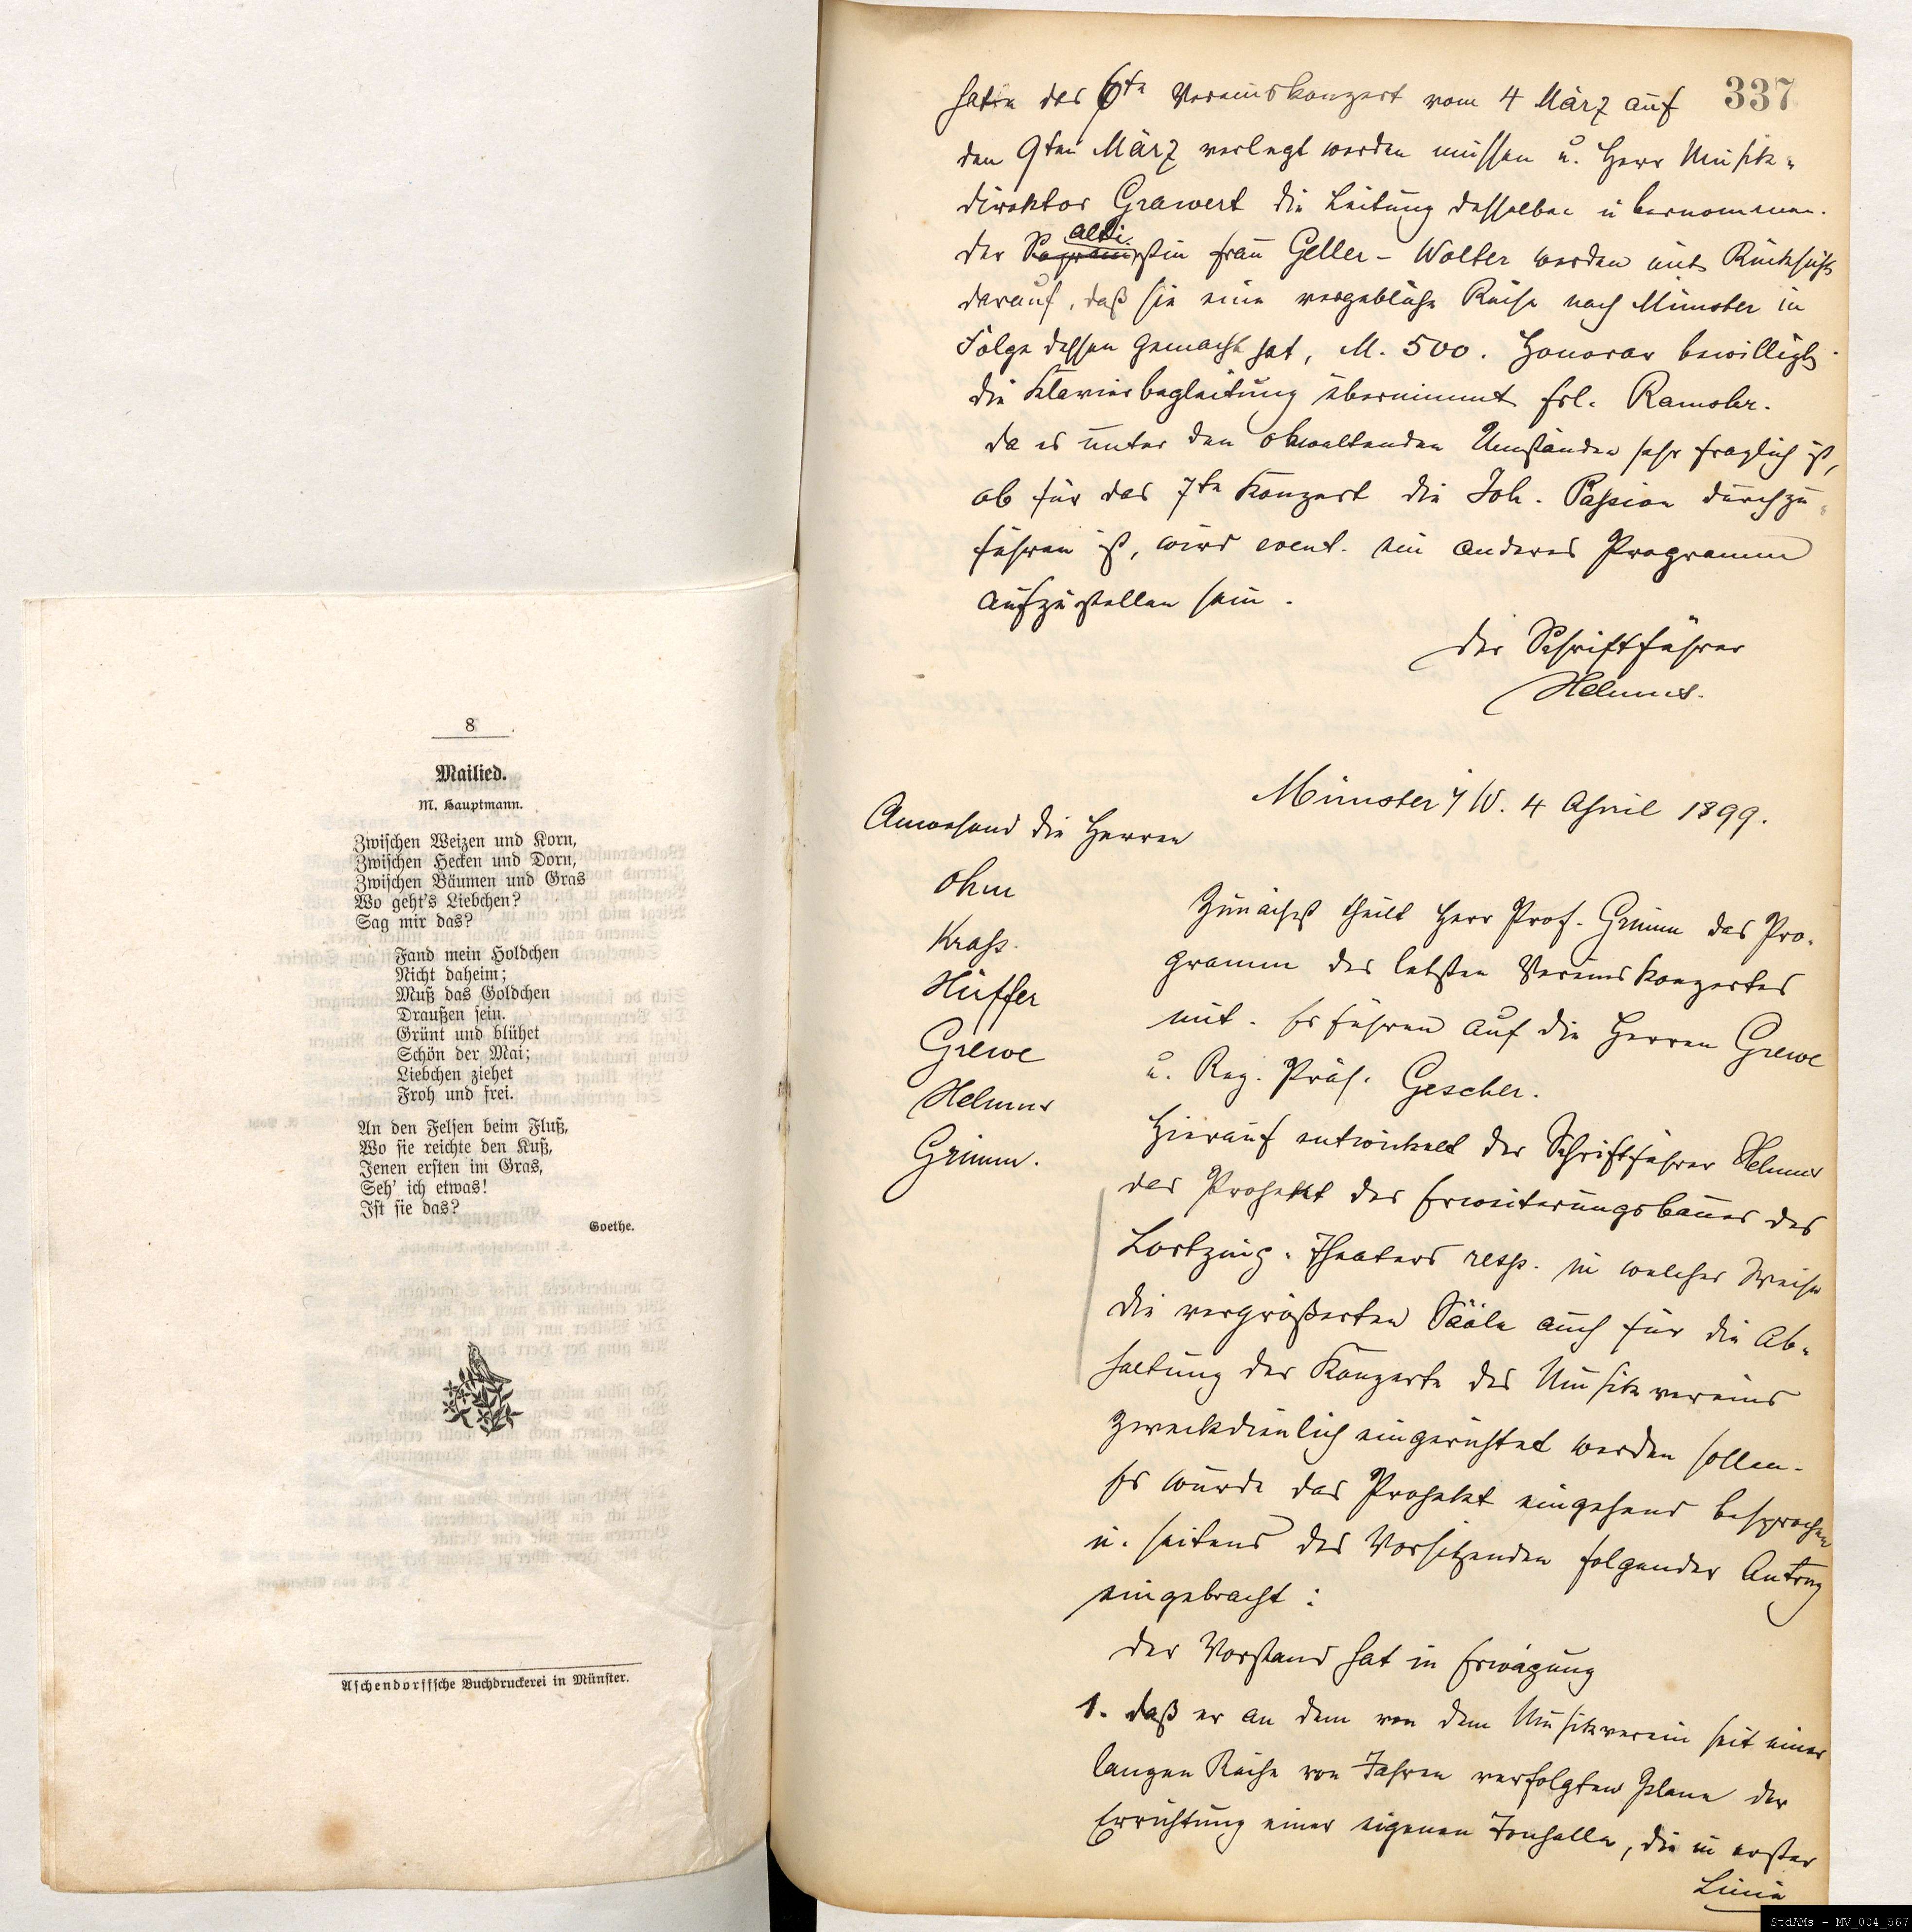 8
Mailied.
M. Hauptmann.
Zwischen Weizen und Korn,
Zwischen Hecken und Dorn,
Zwischen Bäumen und Gras
Wo geht's Liebchen?
Sag mir das?
Fand mein Holdchen
Nicht daheim;
Muß das Goldchen
Draußen sein.
Grünt und blühet
Schön der Mai;
Liebchen ziehet
Froh und frei.
An den Felsen beim Fluß,
Wo sie reichte den Kuß,
Jenen ersten im Gras,
Seh' ich etwas!
Ist sie das?
Goethe.
Aschendorffsche Buchdruckerei in Münster.
337
das 6te Vereinskonzert vom 4 März auf
den 9ten März verlegt werden müssen u. Herr Musik-
direktor Grawert die Leitung desselben übernommen.
Der Sopranistin alti Frau Geller-Wolter werden mit Rücksicht
darauf, daß sie eine vergebliche Reise nach Münster in
Folge dessen gemacht hat, M. 500. Honorar bewilligt.
Die Klavierbegleitung übernimmt Frl.
Da es unter den obwaltenden Umständen sehr fraglich ist,
ob für das 7te Konzert die Joh. Passion durchzu-
führen ist, wird event. ein anderes Programm
aufzustellen sein.
Der Schriftführer
Helmus.
Münster i/W. 4 April 1899.
Anwesend die Herren
Ohm
Krass.
Hüffer
Grewe
Helmus
Grimm.
Zunächst theilt Herr Prof. Grimm das Pro-
gramm des letzten Vereinskonzertes
mit. Es führen auf die Herren Grewe
u. Reg. Präs. Gescher.
Hierauf entwickelt der Schriftführer Helmus
das Projekt des Erweiterungsbaues des
Lortzing-Theaters resp. in welcher Weise
die vergrößerten Sääle auch für die Ab-
haltung der Konzerte des Musikvereins
zweckdienlich eingerichtet werden sollen.
Es wurde das Projekt eingehend besprochen
u. seitens des Vorsitzenden folgender Antrag
eingebracht:
Der Vorstand hat in Erwägung
1. daß er an dem von dem Musikverein seit einer
langen Reihe von Jahren verfolgten Plane der
Errichtung einer eigenen Tonhalle, die in erster
Linie
StdAMs - MV_004_567